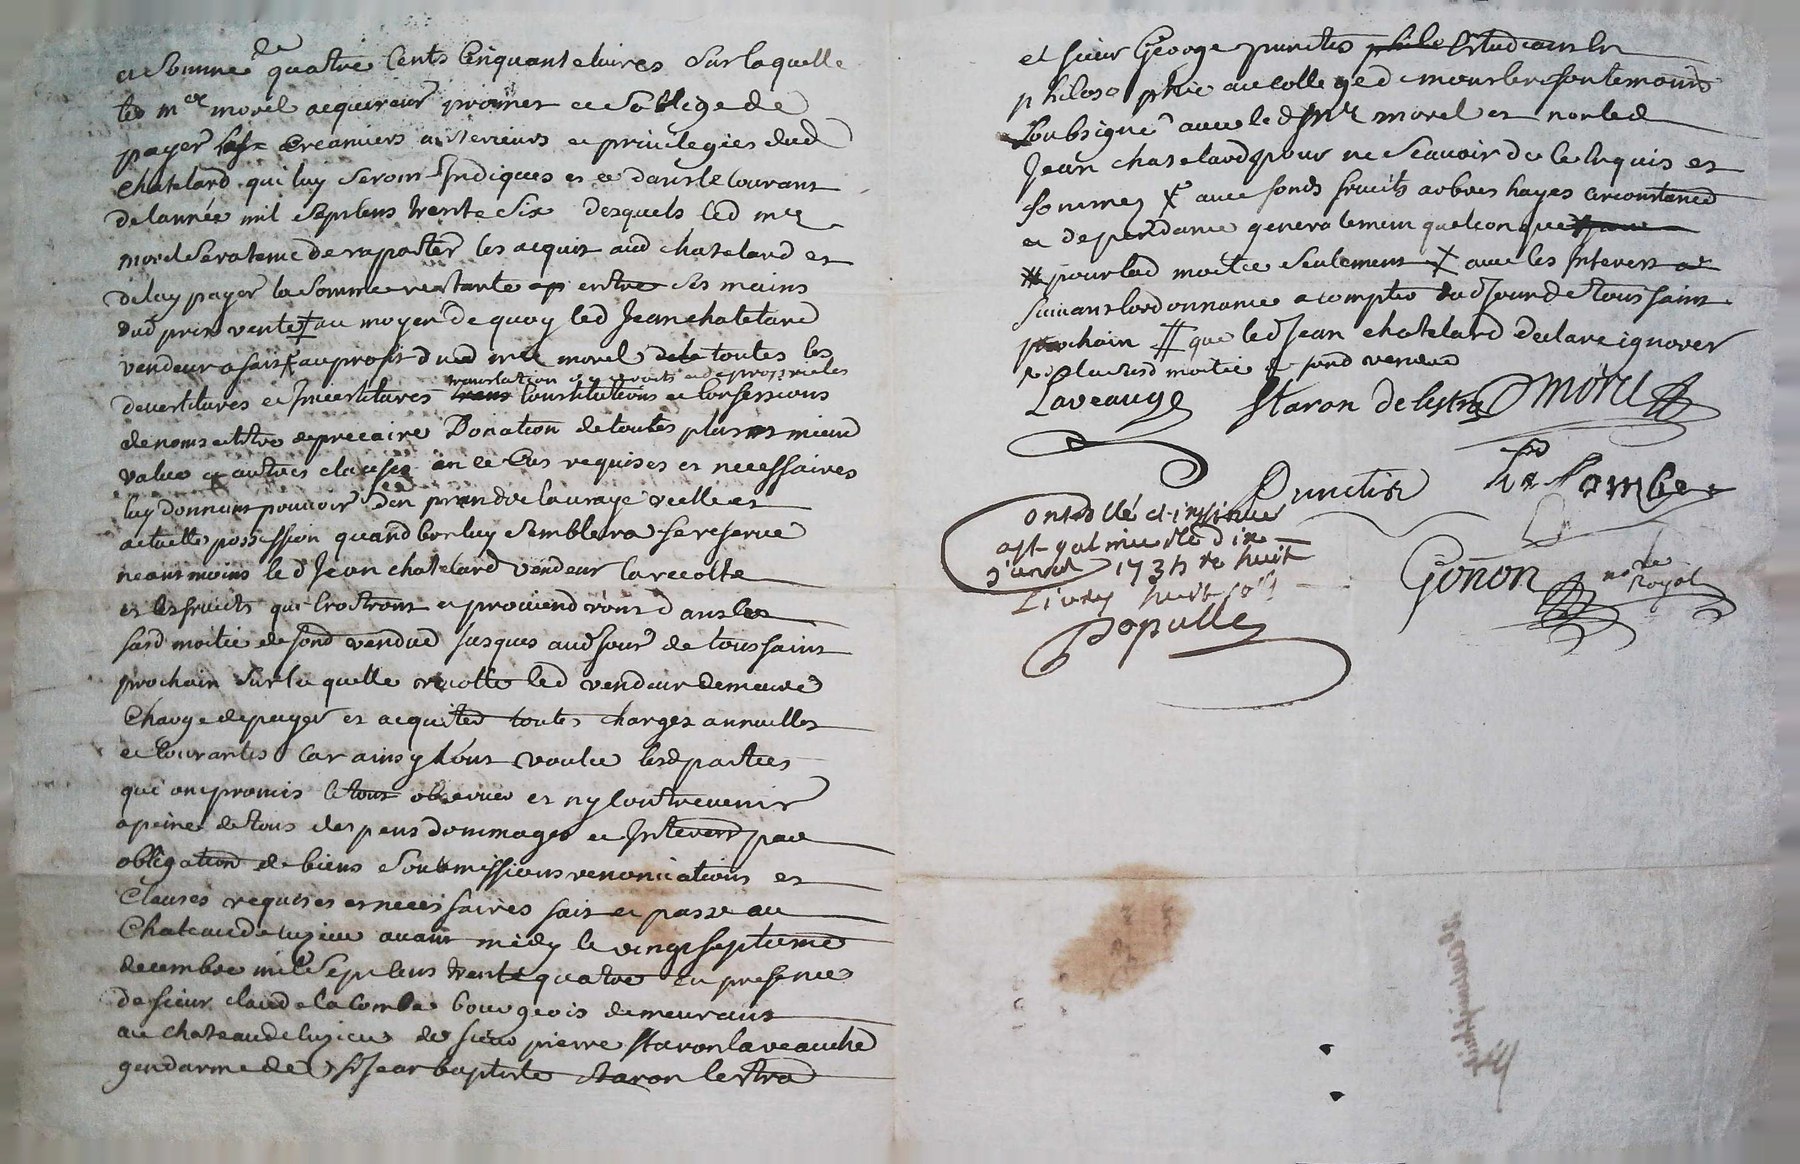 et somme de quatre cents cinquante livres sur laquelle
led mer morel acquereur promet et soblige de
payer les creanciers anterieurs et privilegies dud
chatelard qui luy seront Indiques et ce dans le courant
de lannée mil septcens trente six desquels led mer
morel sera tenu de raporter les acquit aud chatelard et
de luy payer la somme restante entre ses mains
dud prix vente ‡ au moyen de quoy led Jean chatelard
vendeur a fait au profit dud mer morel de toutes les
translation de droits et de proprietes
devertitures et Invertitures trans Constitutions et Confessions
de noms et titre de precaire Donation de toutes plus et mieux
value et autres clauses en ce Cas requises et necessaires
luy donnant pouvoir den prendre la vraye reelle et
actuelle possession quand bon luy semblera se reserve
neantmoins led Jean chatelard vendeur la recolte
et les fruits qui Croitront et proviendront dans la
susd moitié de fond vendue Jusques aud Jour de toussaint
prochain sur la quelle recolte led vendeur demeure
Charge de payer et acquiter toutes charges annuelles
et courantes car ainsy lont voulu lesd parties
qui ont promis le tout observer et ny contrevenir
a peine de tous despens dommages et Interest par
obligation de biens soubmissions renonciations et
Clauses requises et necessaires fait et passe au
Chateau de luzieu avant midy le vingt septieme
decembre mil Sept Cens trente quatre en presence
de sieur claude lacombe bourgeois demeurant
au chateau de luzieu de sieur pierre Staron laveauche
gendarme de Sr Jean baptiste Staron lestra
et sieur George punctis phile Etudiant en
philosophie au college de montbrison temoins
soubsigne avec led Mer morel et non led
Jean chatelard pour ne scavoir de ce enquis et
somme ⨯ avec fonds fruits arbres hayes circonstances
et dependance generalement quelconque
pour lad moitié seulement ⨯ avec les Interest
suivant lordonnance a compter dud Jour de toussaint
prochain ⌗ que led Jean chatelard declare ignorer
de la susd moitié de fond vendue
Laveauge Staron Delestra Morel
Punctis La Combe
Controllé et insinué
a St galmier le dix
Janvier 1735 Re huit
Livres huit sols
Gonon nore Royal
Populle